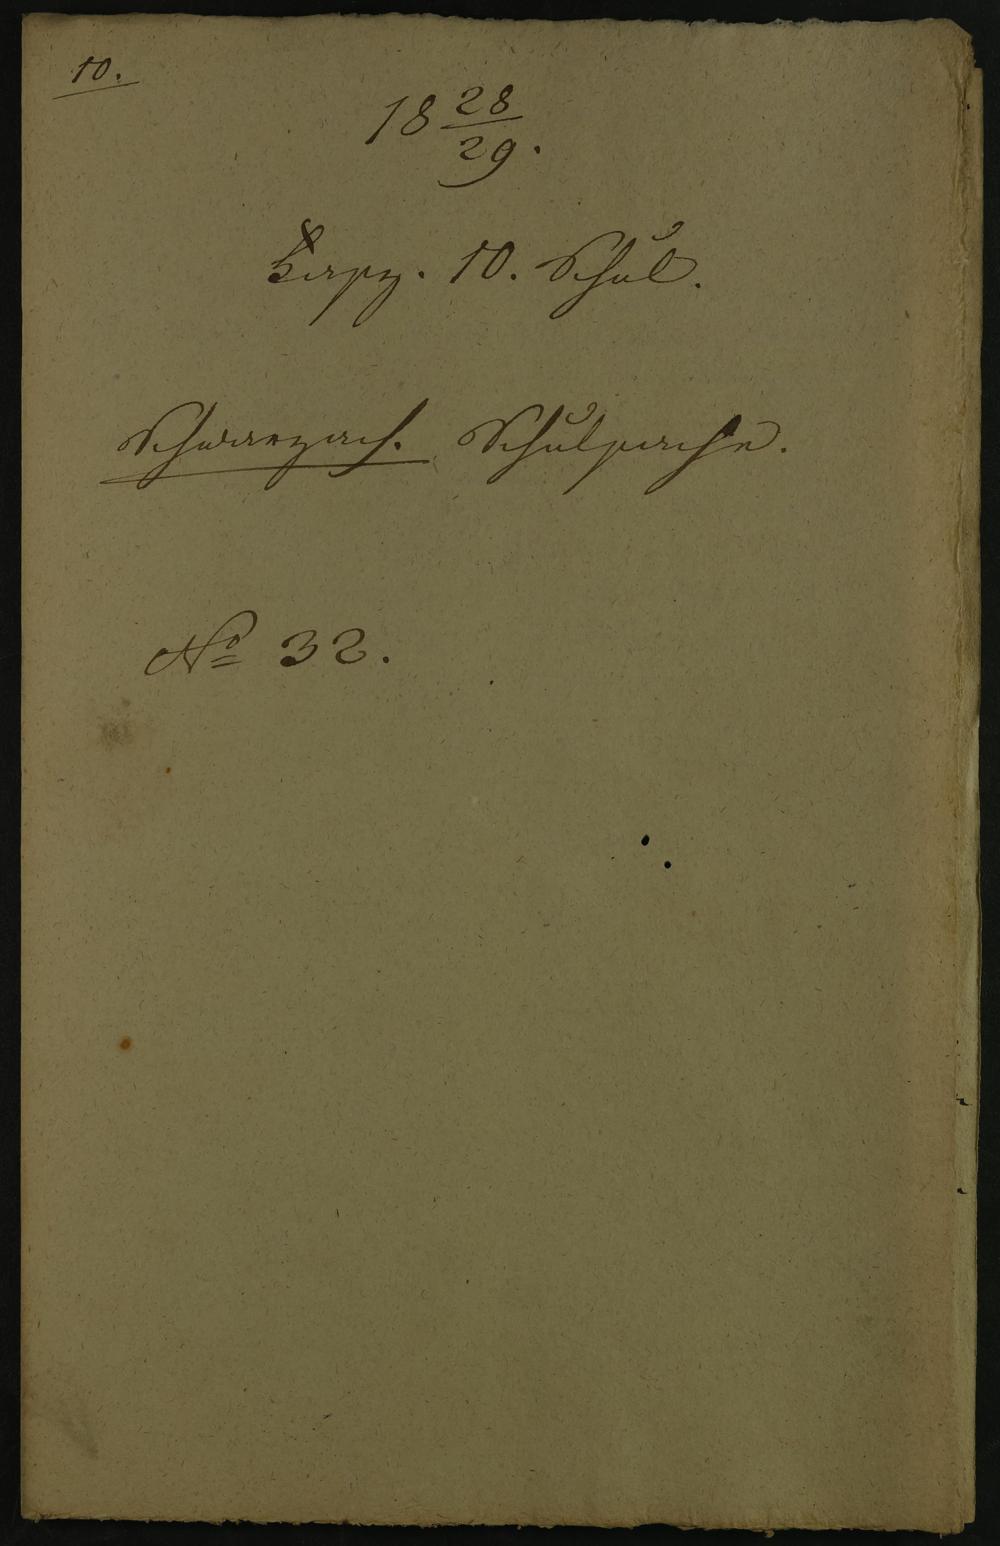 10.
18 28/29.
Fasz. 10. Schul.
Schwarzach. Schulsache.
No 32.